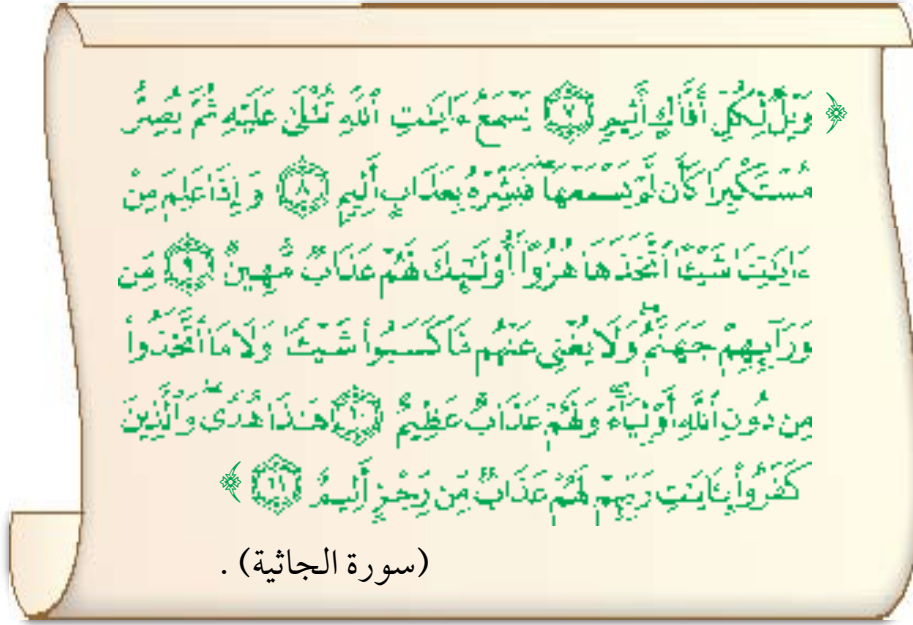 ﴿ وَيْلٌ لِّكُلِّ أَفَّاكٍ أَثِيمٍ ۝٧ يَسْمَعُ ءَايَٰتِ ٱللَّهِ تُتْلَىٰ عَلَيْهِ ثُمَّ يُصِرُّ
مُسْتَكْبِرًا كَأَن لَّمْ يَسْمَعْهَا ۖ فَبَشِّرْهُ بِعَذَابٍ أَلِيمٍ ۝٨ وَإِذَا عَلِمَ مِنْ
ءَايَٰتِنَا شَيْـًٔا ٱتَّخَذَهَا هُزُوًا ۚ أُو۟لَٰٓئِكَ لَهُمْ عَذَابٌ مُّهِينٌ ۝٩ مِّن
وَرَآئِهِمْ جَهَنَّمُ ۖ وَلَا يُغْنِى عَنْهُم مَّا كَسَبُوا۟ شَيْـًٔا وَلَا مَا ٱتَّخَذُوا۟
مِن دُونِ ٱللَّهِ أَوْلِيَآءَ ۖ وَلَهُمْ عَذَابٌ عَظِيمٌ ۝١٠ هَٰذَا هُدًى ۖ وَٱلَّذِينَ
كَفَرُوا۟ بِـَٔايَٰتِ رَبِّهِمْ لَهُمْ عَذَابٌ مِّن رِّجْزٍ أَلِيمٌ ۝١١ ﴾
(سورة الجاثية) .